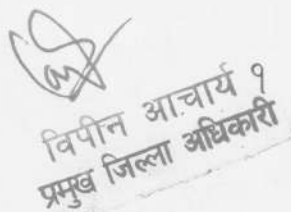 विपीन आचार्य १
प्रमुख जिल्ला अधिकारी